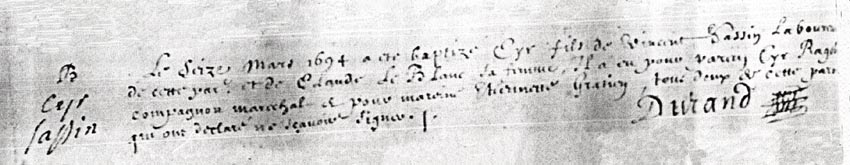 B
Cyr
Sassin
Le Seize Mars 1694 a ete baptizé Cyr fils de Vincent Sassin Laboureur
de cette par. et de Claude Le Blanc sa femme. Il a eu pour parein Cyr
compagnon marechal & pour mareine Etiennette Gratien tous deux de cette par.
qui ont declaré ne sçavoir signer.
Durand